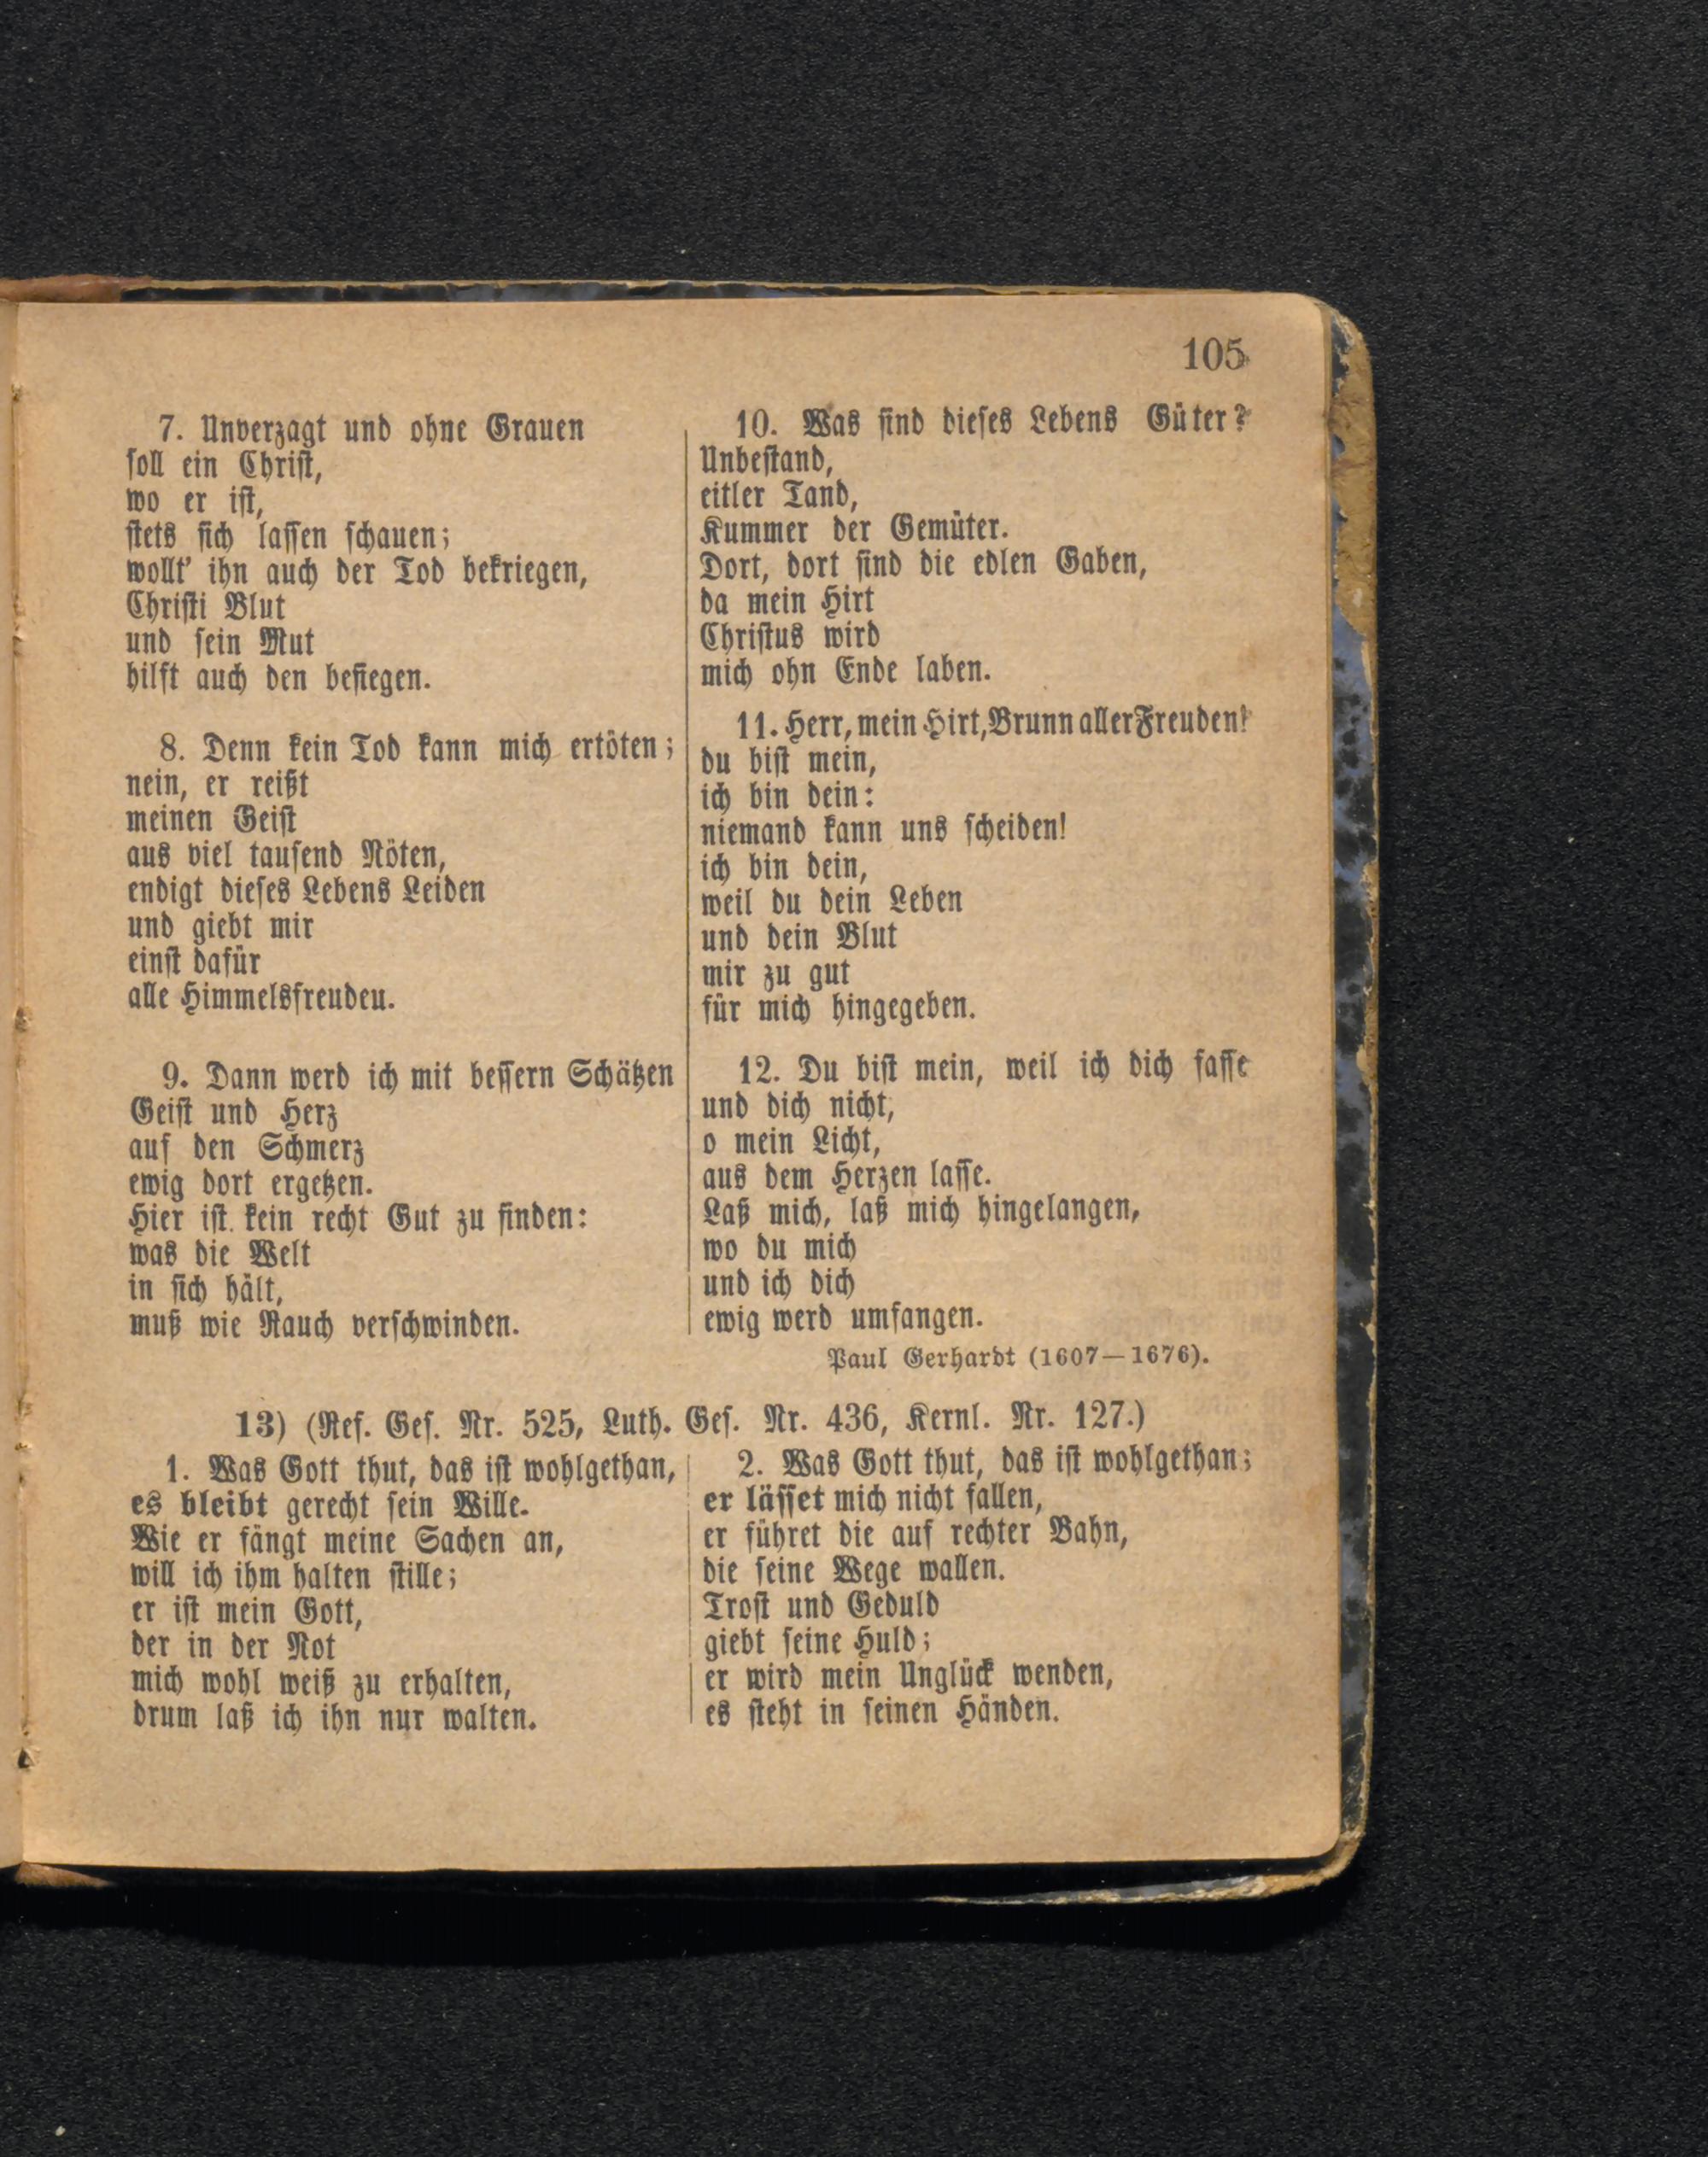 105
7. Unverzagt und ohne Grauen
soll ein Christ,
wo er ist,
stets sich lassen schauen;
wollt' ihn auch der Tod bekriegen,
Christi Blut
und sein Mut
hilft auch den besiegen.
8. Denn kein Tod kann mich ertöten;
nein, er reißt
meinen Geist
aus viel tausend Nöten,
endigt dieses Lebens Leiden
und giebt mir
einst dafür
alle Himmelsfreudeu.
9. Dann werd ich mit bessern Schätzen
Geist und Herz
auf den Schmerz
ewig dort ergetzen.
Hier ist kein recht Gut zu finden:
was die Welt
in sich hält,
muß wie Rauch verschwinden.
10. Was sind dieses Lebens Güter?
Unbestand,
eitler Tand,
Kummer der Gemüter.
Dort, dort sind die edlen Gaben,
da mein Hirt
Christus wird
mich ohn Ende laben.
11. Herr, mein Hirt, Brunn aller Freuden!
du bist mein,
ich bin dein:
niemand kann uns scheiden!
ich bin dein,
weil du dein Leben
und dein Blut
mir zu gut
für mich hingegeben.
12. Du bist mein, weil ich dich fasse
und dich nicht,
o mein Licht,
aus dem Herzen lasse.
Laß mich, laß mich hingelangen,
wo du mich
und ich dich
ewig werd umfangen.
Paul Gerhardt (1607—1676).
13) (Ref. Ges. Nr. 525, Luth. Ges. Nr. 436, Kernl. Nr. 127.)
1. Was Gott thut, das ist wohlgethan,
es bleibt gerecht sein Wille.
Wie er fängt meine Sachen an,
will ich ihm halten stille;
er ist mein Gott,
der in der Not
mich wohl weiß zu erhalten,
drum laß ich ihn nur walten.
2. Was Gott thut, das ist wohlgethan;
er lässet mich nicht fallen,
er führet die auf rechter Bahn,
die seine Wege wallen.
Trost und Geduld
giebt seine Huld;
er wird mein Unglück wenden,
es steht in seinen Händen.